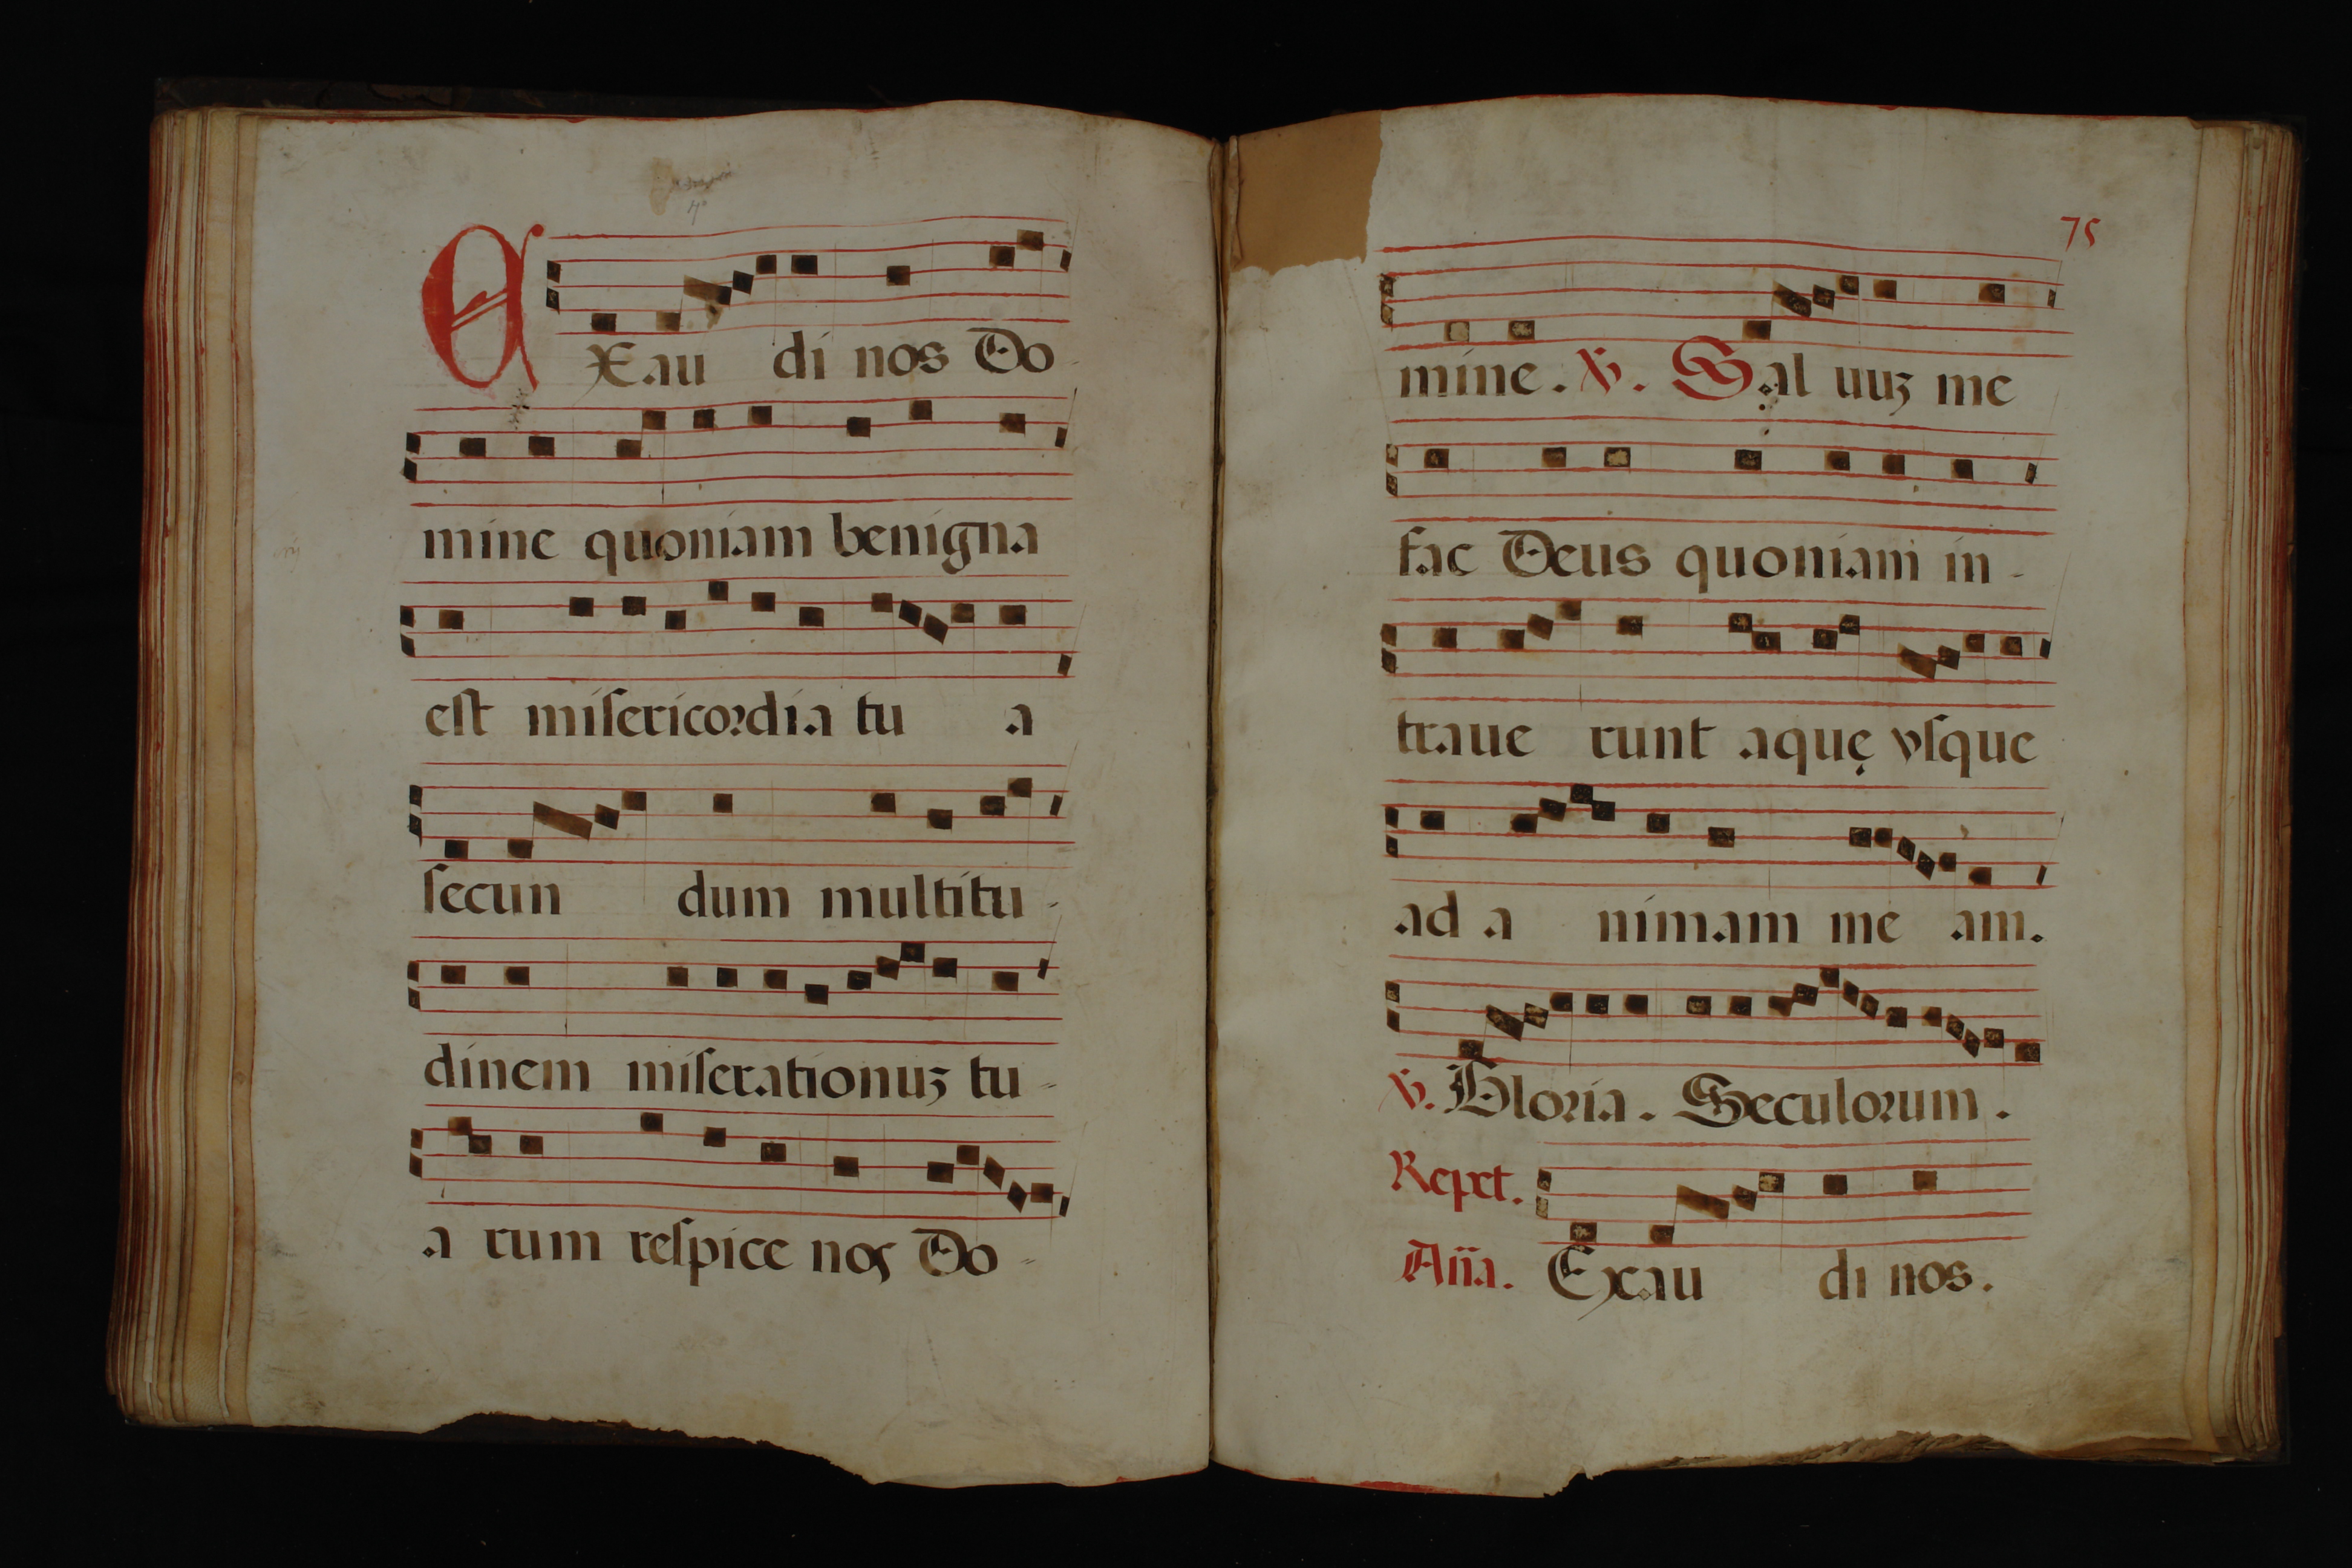 EXau di nos Do-
mine quoniam benigna
eſt miſericordia tu a
ſecun dum multitu-
dinem miſerationuꝫ tu-
a rum reſpice nos Do-
75
mine. ℣. Sal uuꝫ me
fac Deus quoniam in-
traue runt aquę vſque
ad a nimam me am.
℣. Gloria. Seculorum.
Repet.
Aña. Exau di nos.